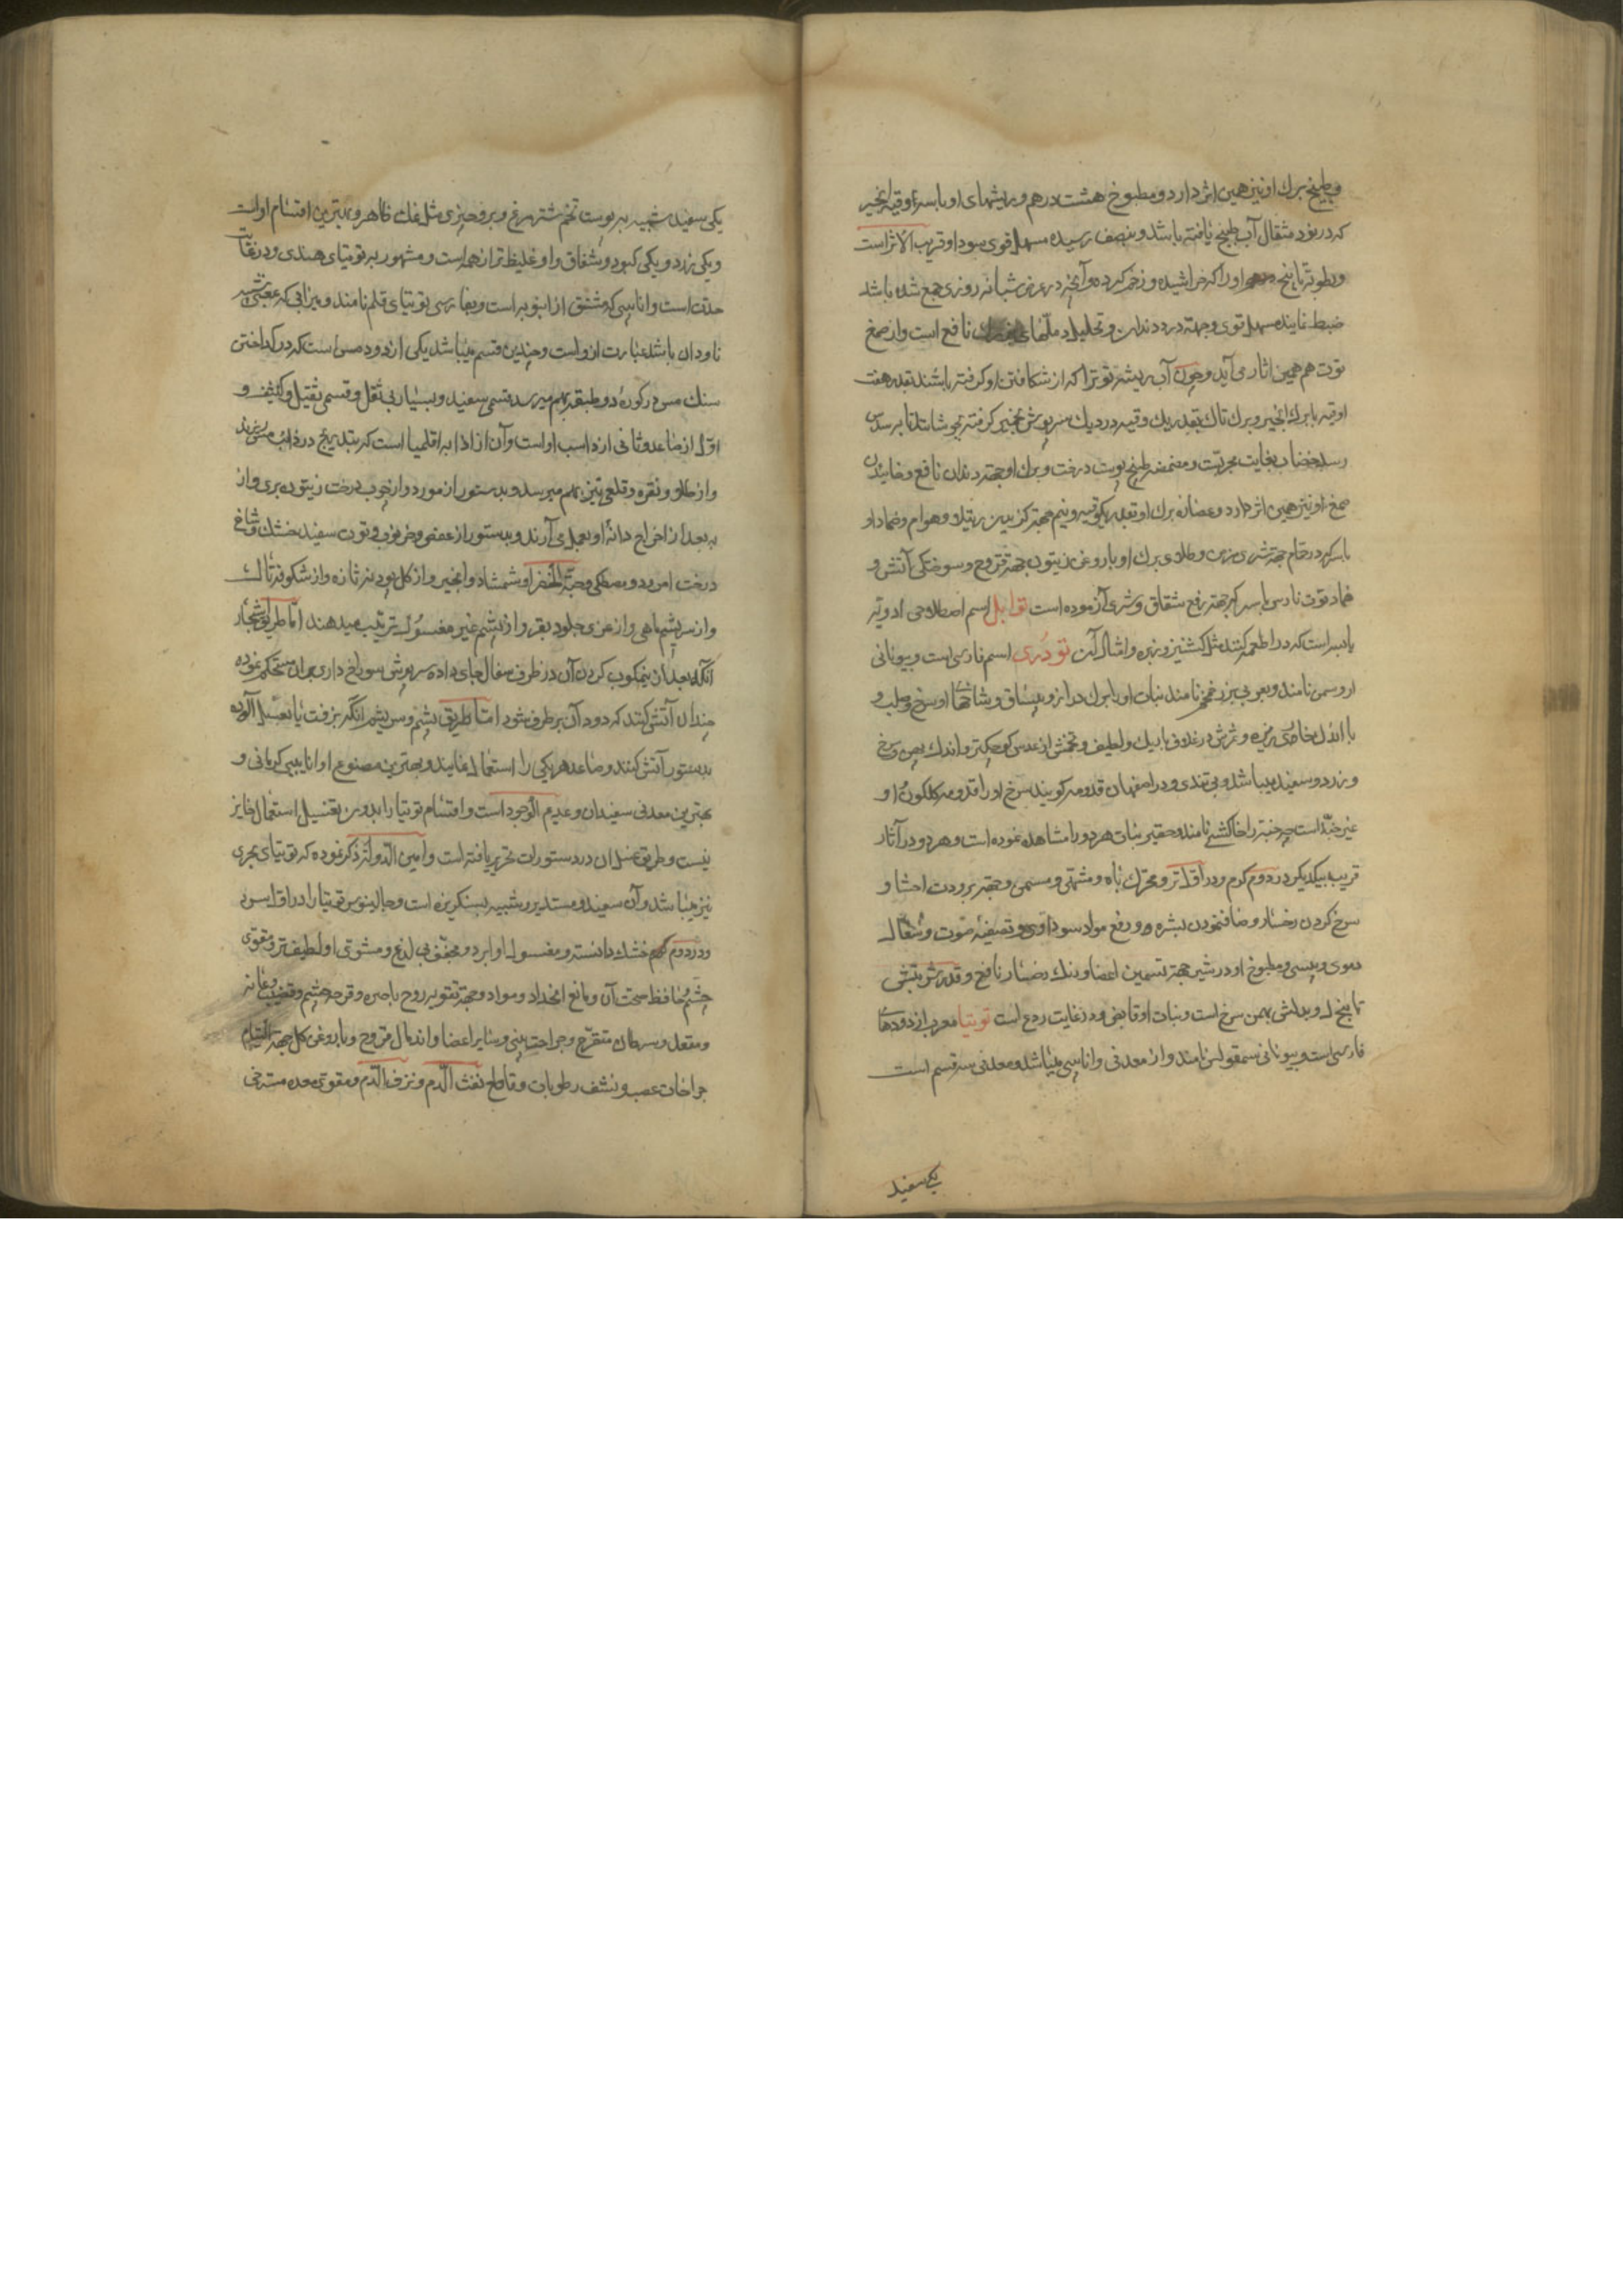 وطبیخ برك او نیز همین اثر دارد و مطبوخ هشت درهم و ریشهای او با سه اوقیه انجیر
كه در نود مثقال آب طبخ یافته باشد و بنصف رسیده مسهل قوی سودا و قریب الاثر است
و رطوبتی تا بیخ او را كه خراشیده و زخم كرده و آنچه در عرض شبانه روزی جمع شده باشد
ضبط نمایند مسهل قوی و جهة درد دندان و تحلیل دملهای نافع است و از صمغ
توت هم همین اثار می آید و چون آب ریشه توت را كه از شكافتن او كرفته باشند بقدر هفت
اوقیه با برك انجیر و برك تاك بقدر یك وقیه در دیك سرپوش بخمیر كرفته بجوشانند تا بر سدس
رسد خضاب بغایت مجربست و مضمضه طبیخ پوست درخت و برك او جهة دندان نافع و خاییدن
صمغ او نیز همین اثر دارد و عصاره برك او بقدر یكوقیه و نیم جهة كزیدن رتیلا و هوام و ضماد او
با سركه در حمام جهة شری مزمن و طلای برك او با روغن زیتون جهة قروح و سوختكی آتش و
ضماد توت نارس با سركه جهة رفع شقاق و شری آزموده است توابل اسم اصطلاحی ادویه
یابسه است كه در اطعمه كنند مثل كشنیز و زیره و امثال آن تودری اسم فارسی است و بیونانی
اروسمن نامند و بعربی بزر خمخم نامند نبات او را برك دراز و بیساق و شاخها او سرخ و صلب و
با اندك خارهای ریزه و ثمرش در غلافی باریك و لطیف و تخمش از عدس كوچكتر و اندك پهن و سرخ
و زرد و سفید میباشد و بی تندی و در اصفهان قدومه كویند سرخ او را قدومه كلكون و او
غیر خبه است چه خبه را خاكشی نامند و حقیر نبات هر دو را مشاهده نموده است و هر دو در آثار
قریب بیكدیكر در دوم كرم و در اول تر و محرك باه و مشهی و مسمن و جهة برودت احشا و
سرخ كردن رخسار و صاف نمودن بشره و و رفع مواد سوداوی و تصفیه صوت و سعال
دموی و یبسی و مطبوخ او در شیر جهة تسمین اعضا و رنك رخسار نافع و قدر شربتش
تا پنج درهم و بدلش بهمن سرخ است و نبات او قابض و در غایت ردع است توتیا معرب از دودهای
فارسی است و بیونانی سمقولس نامند و از معدنی و انابیبی میباشد و معدنی سه قسم است
یكی سفید
یكی سفید شبیه بپوست تخم شتر مرغ و برو چیزی مثل نمك ظاهر و بهترین اقسام اوست
و یكی زرد و یكی كبود و شفاف و او غلیظ تر از همه است و مشهور به توتیای هندی و در غایت
حدت است و انابیبی كه مشتق از انبوبه است و بفارسی توتیای قلم نامند و میزابی كه
ناودان باشد عبارت ازوست و چندین قسم میباشد یكی از دود مس است كه در كداختن
سنك مس در كوره دو طبقه بهم میرسد قسمی سفید و بسیار بی ثقل و قسمی ثقیل و كثیف و
اول از صاعد و ثانی از راسب اوست و آن از اذابه اقلیمیا است كه بتدریج در ذائب مس ریزند
و از طلا و نقره و قلعی نیز بهم میرسد و بدستور از مورد و از خوب درخت زیتون بری و از
به بعد از اخراج دانه او بعمل می آرند و بدستور از عفص و خرنوب و توت سفید خشك و شاخ
درخت امرود و مصطكی و حبة الخضرا و شمشاد و انجیر و از كل پودینه تازه و از شكوفه تاك
و از سریشم ماهی و از غری جلود بقر و از پشم غیر مغسول ترتیب میدهند اما طریق اشجار
آنكه بعد از نیمكوب كردن آن در ظرف سفال جای داده سرپوش سوراخ داری بران مستحكم نموده
چندان آتش كنند كه دود آن برطرف شود اما طریق پشم و سریشم انكه بزفت یا بعسل آلوده
بدستور آتش كنند و صاعد هر یكی را استعمال نمایند و بهترین مصنوع او انابیبی كرمانی و
بهترین معدنی سفید آن و عدیم الوجود است و اقسام توتیا را بدون تغسیل استعمال جایز
نیست و طریق غسل آن در دستورات تحریر یافته است و امین الدوله ذكر نموده كه توتیای بحری
نیز میباشد و آن سفید و مستدیر و شبیه بسنكریزه است و جالینوس توتیا را در اول سرد
و در دوم خشك دانسته و مغسول او ابرد و مجفف بی لذع و مشوی او لطیف تر و مقوی
چشم و حافظ صحت آن و مانع انحدار مواد و جهة تقویه روح باصره و قرحه چشم و قضیب و عانه
و مقعد و سرطان متقرح و جراحت بینی و سایر اعضا و اندمال قروح و با روغن كل جهة التیام
جراحات عصب و نشف رطوبات و قاطع نفث الدم و نزف الدم و مقوی معده مسترخی